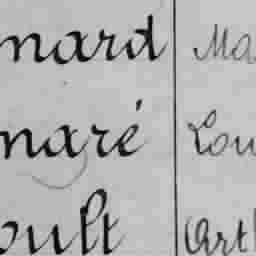 nard Ma
naré Lou
oult Art